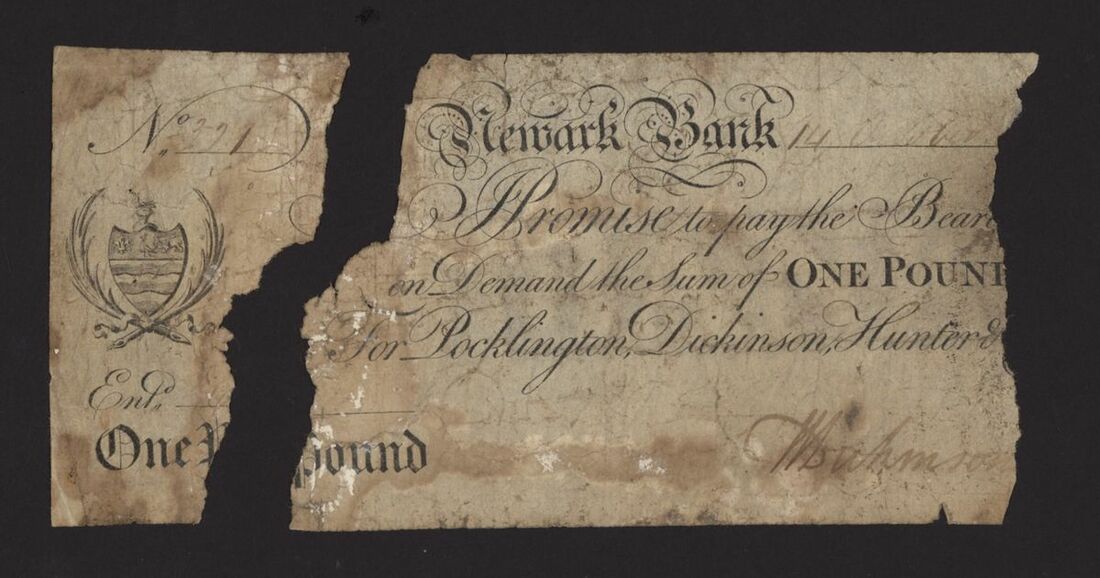 No. 221
Newark Bank 14
I Promise to pay the Bear
on Demand the Sum of ONE POUN
For Pocklington, Dickinson, Hunter &
Entd.
One P pound